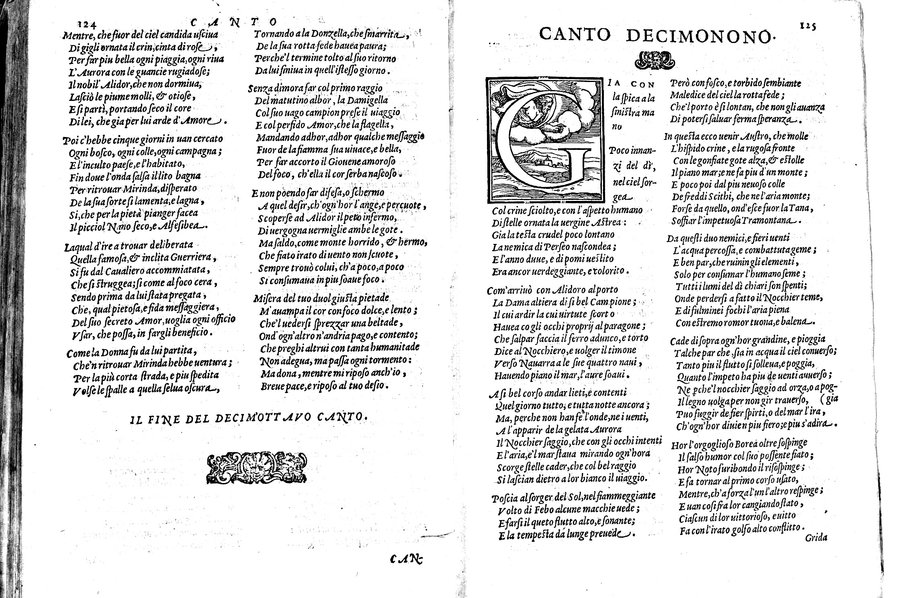 124
CANTO
Mentre, che fuor del ciel candida usciua
Di gigli ornata il crin, cinta di rose,
Per far piu bella ogni piaggia, ogni riua
L'Aurora con le guancie rugiadose;
Il nobil' Alidor, che non dormiua,
Lasciò le piume molli, & otiose,
E si partì, portando seco il core
Di lei, che gia per lui arde d'Amore.
Poi c'hebbe cinque giorni in uan cercato
Ogni bosco, ogni colle, ogni campagna;
E l'inculto paese, e l'habitato,
Fin doue l'onda salsa il lito bagna
Per ritrouar Mirinda, disperato
De la sua sorte si lamenta, e lagna,
Si, che per la pietà pianger facea
Il picciol Nano seco, e Alfesibea.
Laqual d'ire a trouar deliberata
Quella famosa, & inclita Guerriera,
Si fu dal Caualiero accommiatata,
Che si struggea; si come al foco cera,
Sendo prima da lui stata pregata,
Che, qual pietosa, e fida messaggiera,
Del suo secreto Amor, uoglia ogni officio
Vsar, che possa, in far gli beneficio.
Come la Donna fu da lui partita,
Che'n ritrouar Mirinda hebbe uentura;
Per la più corta strada, e piu spedita
Volse le spalle a quella selua oscura,
Tornando a la Donzella, che smarrita,
De la sua rotta fede hauea paura;
Perche'l termine tolto al suo ritorno
Da lui finiua in quell'istesso giorno.
Senza dimora far col primo raggio
Del matutino albor, la Damigella
Col suo uago campion prese il uiaggio
E col perfido Amor, che la flagella,
Mandando adhor, adhor qualche messaggio
Fuor de la fiamma sua uiuace, e bella,
Per far accorto il Giouene amoroso
Del foco, ch'ella il cor serba nascoso.
E non poendo far difesa, o schermo
A quel desir, ch'ogn'hor l'ange, e percuote,
Scoperse ad Alidor il peto infermo,
Di uergogna uermiglie ambe le gote.
Ma saldo, come monte horrido, & hermo,
Che fiato irato di uento non scuote,
Sempre trouò colui, ch'a poco, a poco
Si consumaua in piu soaue foco.
Misera del tuo duol giusta pietade
M'auampa il cor con foco dolce, e lento;
Che'l uedersi sprezzar una beltade,
Ond'ogn'altro n'andria pago, e contento;
Che preghi altrui con tanta humanitade
Non adegua, ma passa ogni tormento:
Ma dona, mentre mi riposo anch'io,
Breue pace, e riposo al tuo desio.
IL FINE DEL DECIMOTTAVO CANTO.
CAN-
125
CANTO DECIMONONO.
GIA CON
la spica a la
sinistra ma
no
Poco innan-
zi del dì,
nel ciel sor-
gea
Col crine sciolto, e con l'aspetto humano
Di stelle ornata la uergine Astrea:
Gia la testa crudel poco lontano
La nemica di Perseo nascondea;
E l'anno dune, e di pomi uestito
Era ancor uerdeggiante, e colorito.
Com'arriuò con Alidoro al porto
La Dama altiera di sì bel Campione;
Il cui ardir la cui uirtute scorto
Hauea co gli occhi proprij al paragone;
Che salpar faccia il ferro adunco, e torto
Dice al Nocchiero, e uolger il timone
Verso Nauarra a le sue quattro naui,
Hauendo piano il mar, l'aure soaui.
A sì bel corso andar lieti, e contenti
Quel giorno tutto, e tutta notte ancora;
Ma, perche non han fe l'onde, ne i uenti,
A l'apparir de la gelata Aurora
Il Nocchier saggio, che con gli occhi intenti
E l'aria, e'l mar staua mirando ogn'hora
Scorge stelle cader, che col bel raggio
Si lascian dietro a lor bianco il uiaggio.
Poscia al sorger del Sol, nel fiammeggiante
Volto di Febo alcune macchie uede;
E farsi il queto flutto alto, e sonante;
E la tempesta da lunge preuede.
Però con fosco, e torbido sembiante
Maledice del ciel la rotta fede;
Che'l porto è sì lontan, che non gli auanza
Di potersi saluar ferma speranza.
In questa ecco uenir Austro, che molle
L'hispido crine, e la rugosa fronte
Con le gonfiate gote alza, & estolle
Il piano mar; e ne fa piu d'un monte;
E poco poi dal piu neuoso colle
De freddi Scithi, che ne l'aria monte;
Forse da quello, ond'esce fuor la Tana,
Soffiar l'impetuosa Tramontana.
Da questi duo nemici, e fieri uenti
L'acqua percossa, e combattuta geme;
E ben par, che ruini gli elementi,
Solo per consumar l'humano seme;
Tutti i lumi del dì chiari son spenti;
Onde perdersi a fatto il Nocchier teme,
E di fulmini e fochi l'aria piena
Con estremo romor tuona, e balena.
Cade di sopra ogn'hor grandine, e pioggia
Tal che par che, sia in acqua il ciel conuerso;
Tanto piu il flutto si solleua, e poggia,
Quanto l'impeto ha piu de uenti auuerso;
Ne pche'l nocchier saggio ad orza, o pog-
(gia
Il legno uolga per non gir trauerso,
Puo fuggir de fier spirti, o del mar l'ira,
Ch'ogn'hor diuien piu fiero; e piu s'adira.
Hor l'orgoglioso Borea oltre sospinge
Il salso humor col suo possente fiato;
Hor Noto furibondo il rispinge;
E fa tornar al primo corso usato,
Mentre, ch'a forza l'un l'altro respinge;
E uan così fra lor cangiando stato,
Ciascun di lor uittorioso, e uitto
Fa con l'irato golfo alto conflitto.
Grida